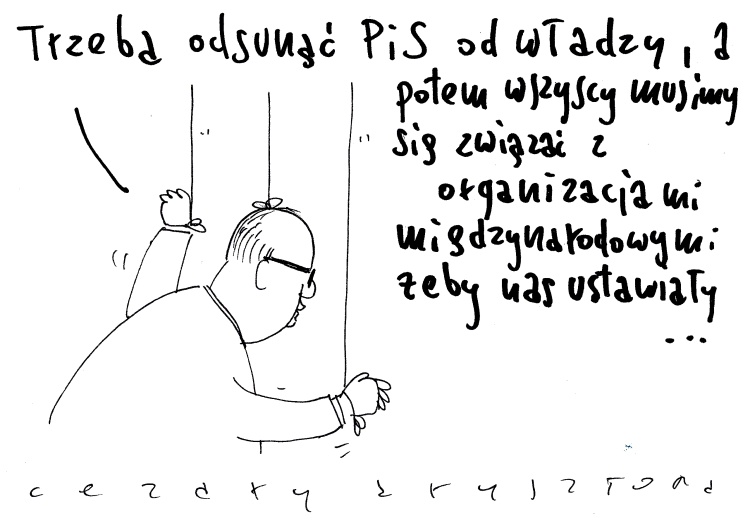 Trzeba odsunąć PiS od władzy, a
potem wszyscy musimy
się związać z
organizacjami
międzynarodowymi
żeby nas ustawiały
...
cezary krysztopa